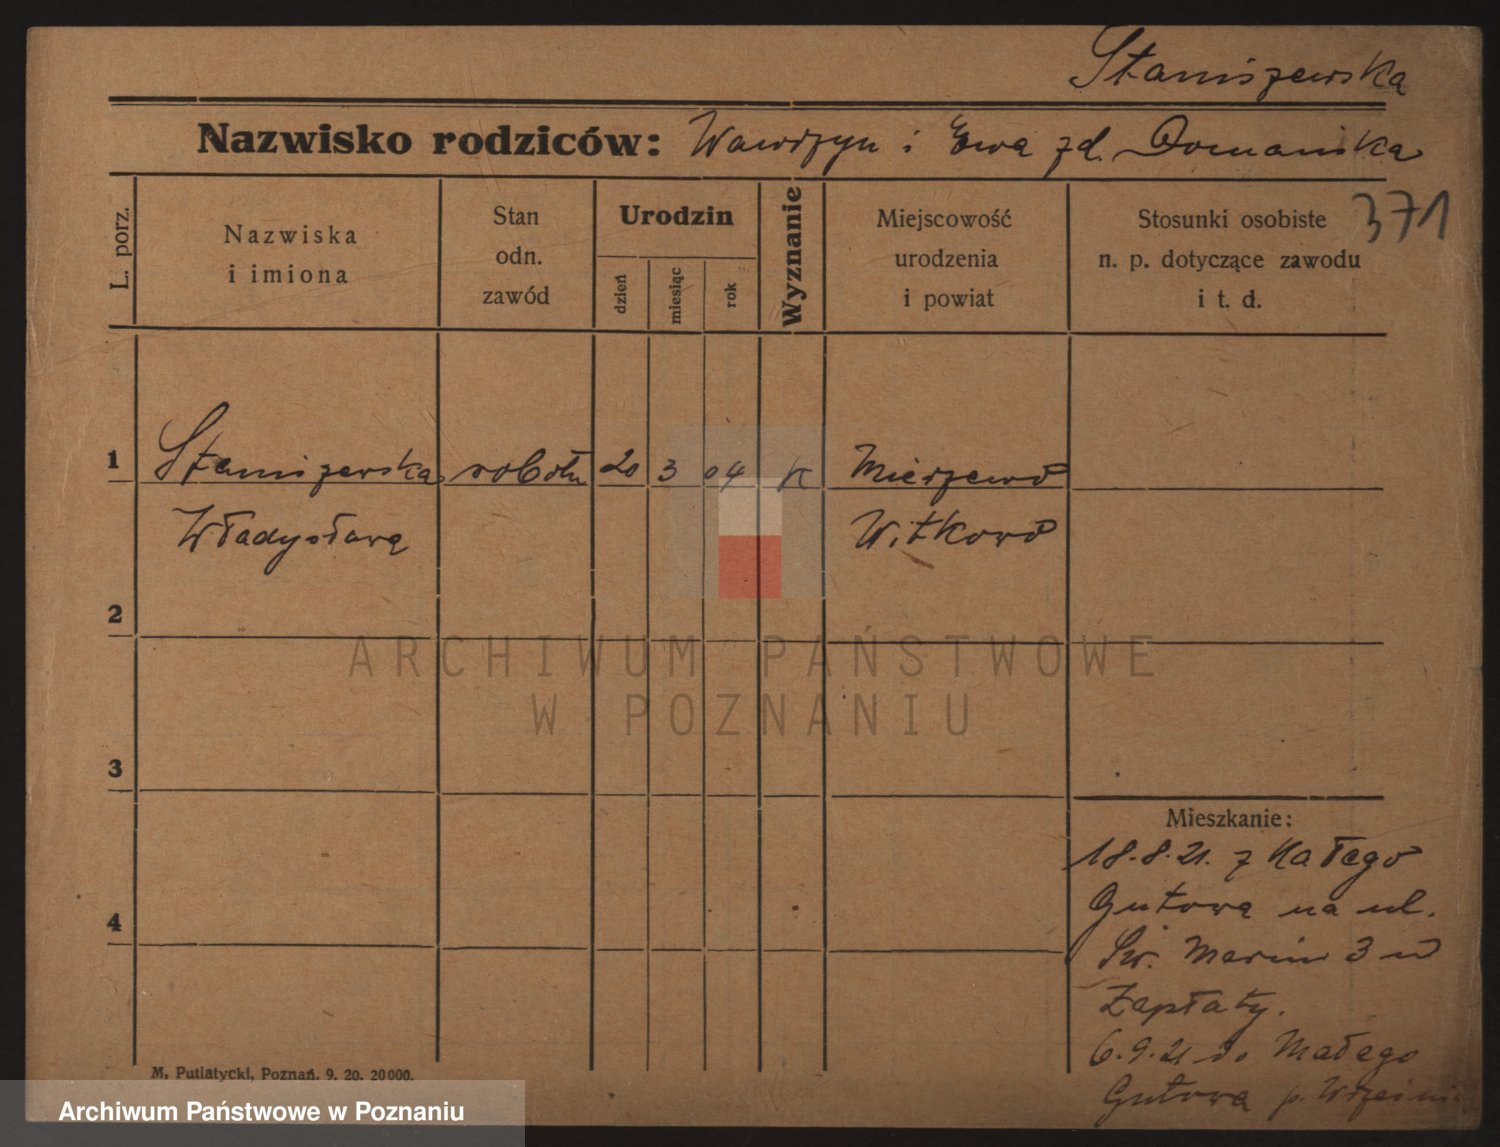 Staniszewska
Nazwisko rodziców: Wawrzyn i Ewa zd. Domańska
371
L. porz.
Nazwiska
i imiona
Stan
odn.
zawód
Urodzin
dzień
miesiąc
rok
Wyznanie
Miejscowość
urodzenia
i powiat
Stosunki osobiste
n. p. dotyczące zawodu
i t. d.
1 Staniszewska robotn 20 3 04 K Mierzewo
Władysława Witkowo
2
ARCHIWUM PAŃSTWOWE
W POZNANIU
3
Mieszkanie:
18.8.21. z Małego
Gutowa na ul.
4
Św. Marcin 3 u
Zapłaty.
6.9.21 do Małego
Gutowa p. Września
M. Putiatycki, Poznań. 9. 20. 20000.
Archiwum Państwowe w Poznaniu